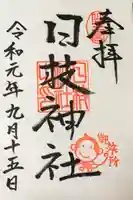 奉拝
日枝神社
令和元年九月十五日